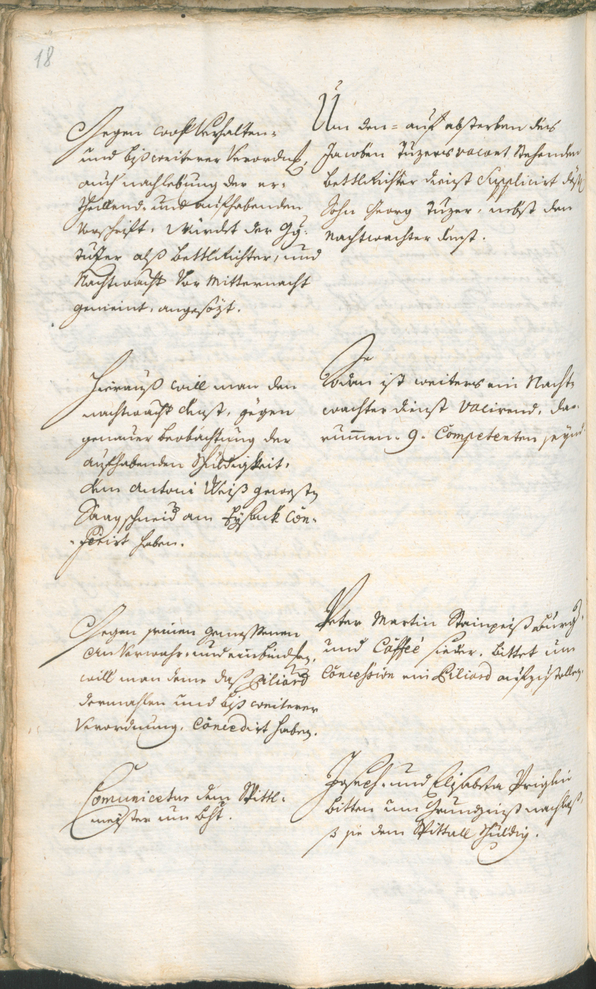 18
Gegen wohl verhalten-
und biß weiterer verordnung,
auch nachlebung der er-
theillend- und aufhabenden
vorschrifft, würdet der Gg:
Tuzer alß Bettlrichter, und
Nachtwacht vor Mitternacht
gemeint, angesözt.
Um den- auf absterben des
Jacoben Tuzers vacant stehenden
Bettlrichter dienst Supplicirt dessen
Sohn Georg Tuzer, nebst den
Nachtwachter dienst.
Hierauf will man den
nachtwacht dienst, gegen
genauer beobachtung der
aufhabenden schuldigkeit,
dem Antoni Weiß gewesten
Saagschneid am Eysack Con-
ferirt haben.
Zudem ist weiters ein Nacht-
wachter dienst vacirend, da-
rummen 9. Competenten seynd
Gegen seinen gemessenen
und einbinden,
will man deme das Biliard
dermahlen und biß weiterer
verordnung, Concedirt haben.
Peter Martin Burg.
und Caffée sieder, bittet um
Concession ein Biliard aufzustellen,
Comunicetur dem Spittl-
meister um bht.
Joseph- und Elisabetha
bitten um nachlaß,
so sie dem Spittall schuldig.